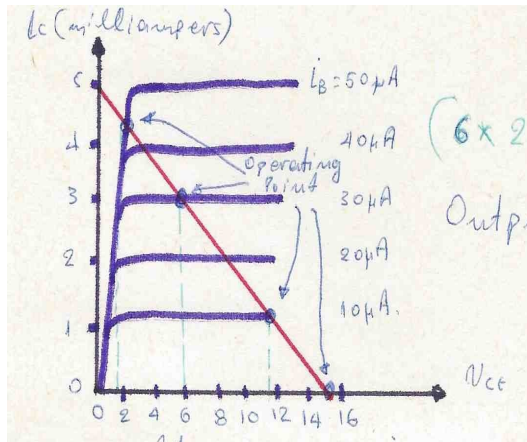 ic (milliampers)
5
4
3
2
1
0
iB = 50μA
40μA
30μA
20μA
10μA.
Operating
Point
(6 × 2
Outp
0 2 4 6 8 10 12 14 16
VCE